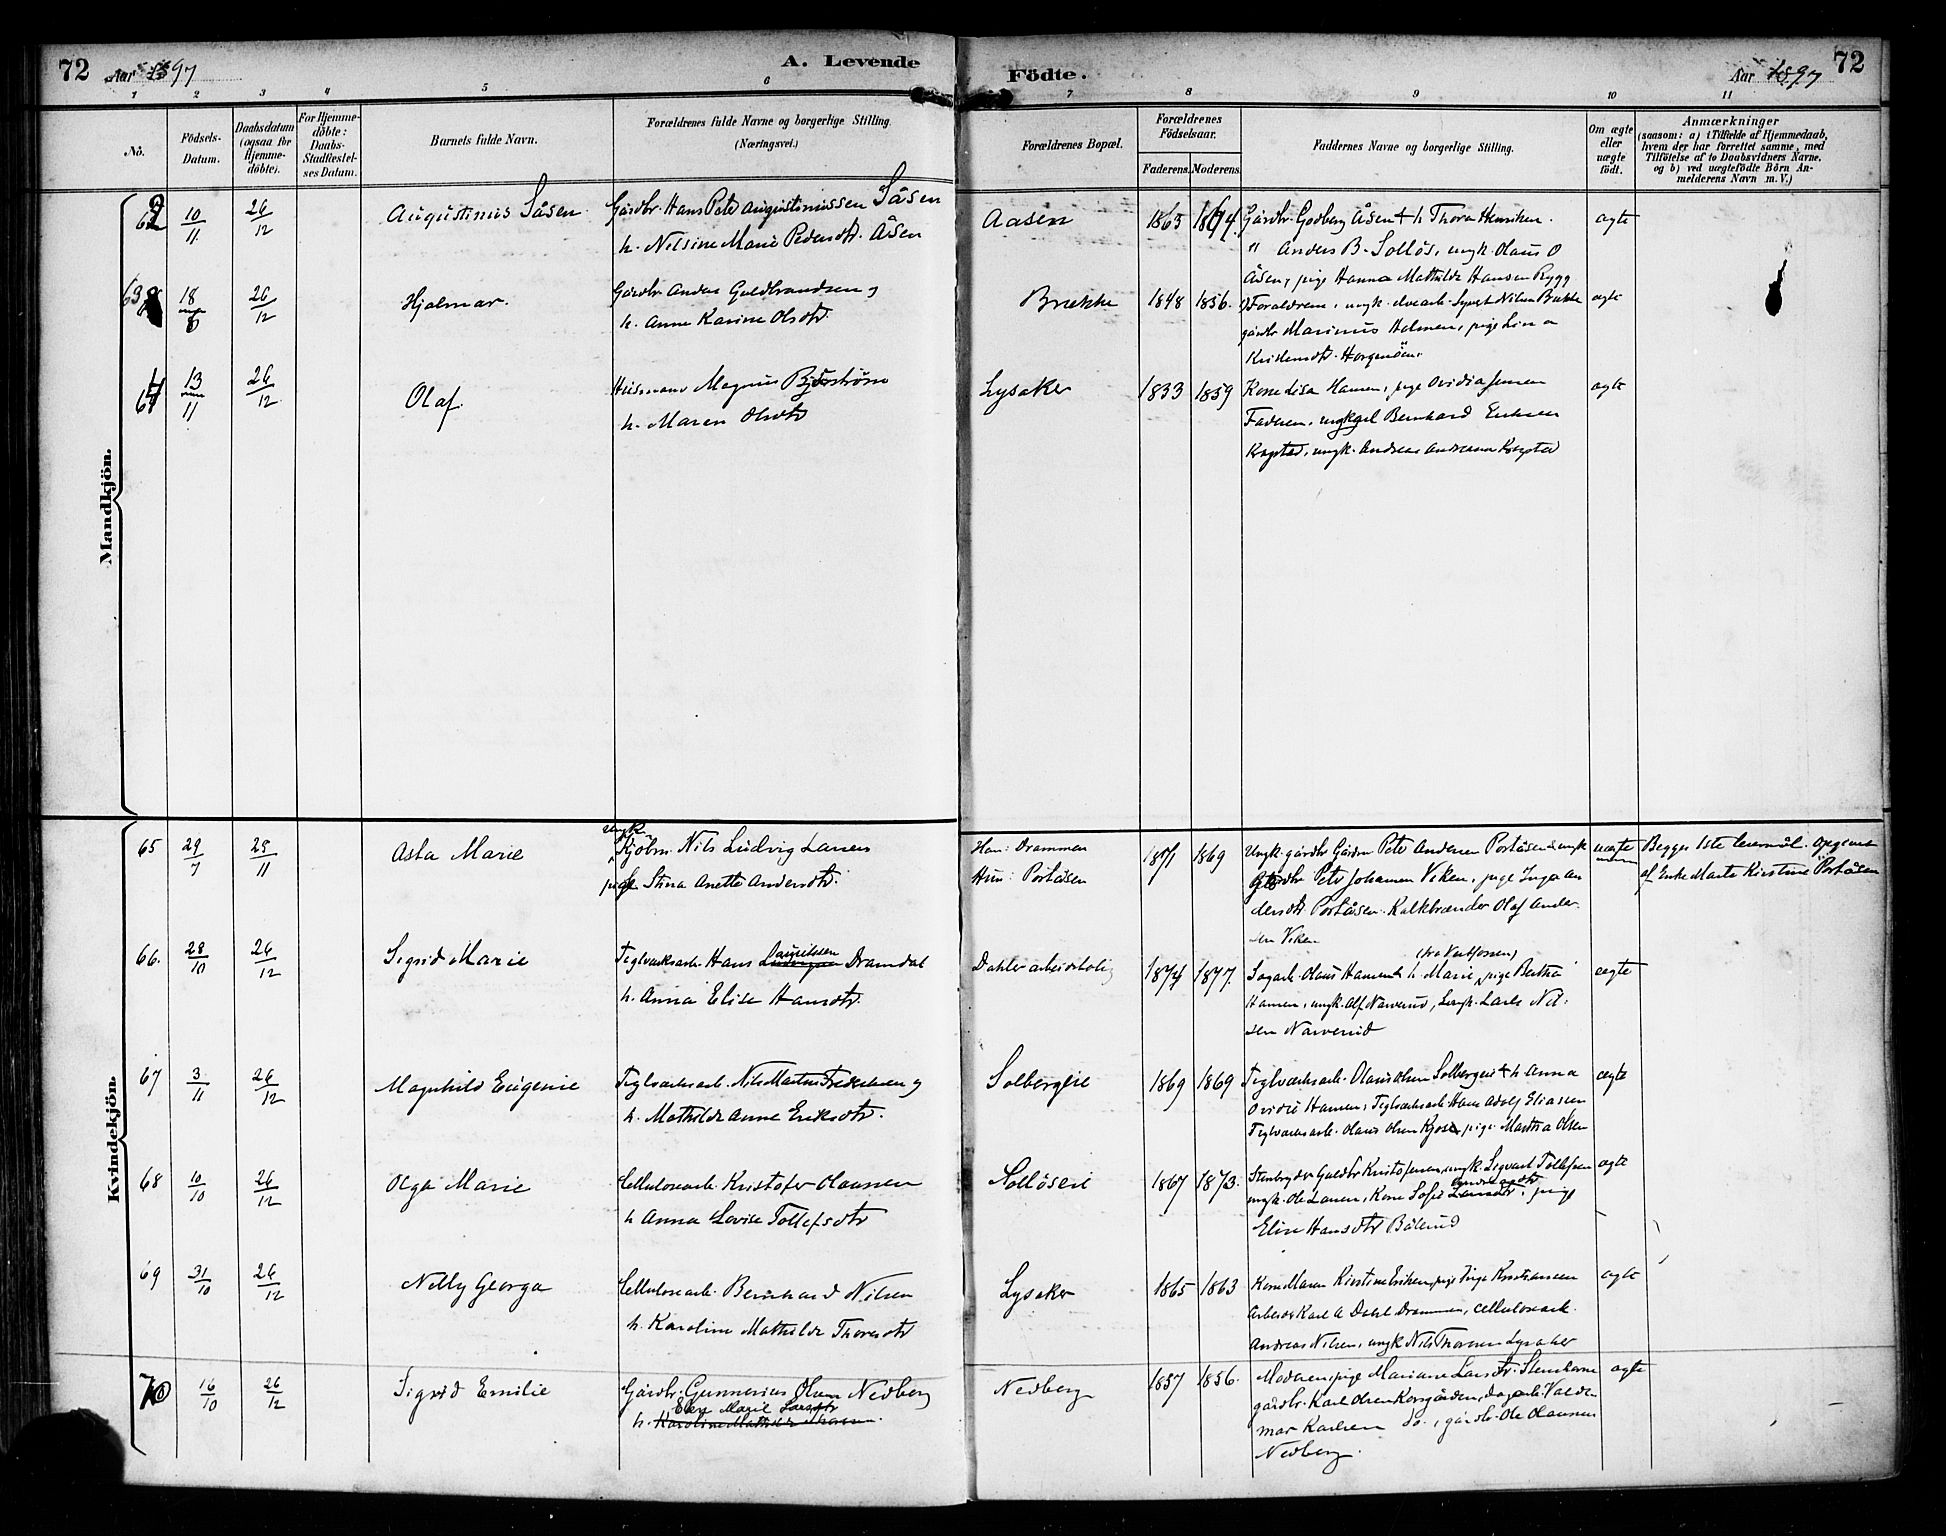 72
Aar 1897
A. Levende
Födte.
Aar 1897
72
1 2 3 4 5 6 7 8 9 10 11
No.
Födsels-
Datum.
Daabsdatum
(ogsaa for
Hjemme-
döbte).
For Hjemme-
döbte:
Daabs-
Stadfæstel-
ses Datum.
Barnets fulde Navn.
Forældrenes fulde Navne og borgerlige Stilling.
(Næringsvei.)
Forældrenes Bopæl.
Forældrenes
Födselsaar.
Faderens. Moderens.
Faddernes Navne og borgerlige Stilling.
Om ægte
eller
uægte
födt.
Anmærkninger
(saasom: a) i Tilfælde af Hjemmedaab,
hvem der har forrettet samme, med
Tilföielse af to Daabsvidners Navne,
og b) ved uægtefödte Börn An-
melderens Navn m. V.)
Mandkjön.
62 10/11 26/12 Augustinus Såsen Gårdbr. Hans Peter Augustinussen Såsen
h. Nilsine Marie Pedersdtr. Åsen
Aasen 1863 1864. Gårdbr. Godberg Åsen & h Thora Henriksen. ægte
" Anders B. Sollös, ungk. Olaus O
Åsen, pige Hanna Mathilde Hansen Rygg
63 18/8 26/12 Hjalmar. Gårdbr. Anders Guldbrandsen og
h. Anne Karine Olsdtr.
Brække 1848 1856. Forældrene, ungk. Nilsen Brække ægte
gårdbr Marinus Holmen, pige Lina
Kristensdtr. Horgenöen.
64 13/11 26/12 Olaf. Husmand Magnus Björström
h. Maren Olsdtr
Lysaker 1833 1859 Kone Lisa Hansen, pige Ovidia Jensen ægte
Faderen, ungkarl Bernhard Eriksen
Kopstad, ungk. Andreas Andersen Kopstad
Kvindekjön.
65 29/7 25/11 Asta Marie ungk.
Kjöbm. Nils Ludvig Larsen
pige Stina Anette Andersdtr.
Han: Drammen
Hun: Portåsen
1871 1869 Ungk. gårdbr Peter Andersen Portåsen & ungk uægte
Gårdbr Peter Johansen Viken, pige Inga An
dersdtr Portåsen. Kalkbrænder Olaf Ander.
sen Viken
Begges 1ste leiermål. Opgivet
af Enke Marte Kirstine Portåsen
66. 28/10 26/12 Sigrid Marie Teglværksarb. Hans Lauritsen Dramdal
h. Anna Elise Hansdtr.
Dahler arbeiderbolig 1874 1877. Sagarb. Olaus Hansen & h. Marie, pige Bertha ægte
(fra Vestfossen)
Hansen, ungk. Alf Narverud, ungk. Lars Nil-
sen Narverud
67 3/11 26/12 Magnhild Eugenie Teglværksarb. Nils Martin Fredriksen og
h. Mathilde Anne Eriksdtr.
Solbergeie 1869 1869 Teglværksarb. Olaus Olsen Solbergeie & h Anna ægte
Ovidie Hansen, Teglværksarb. Hans Adolf Eliassen
Teglværksarb. Olaus Olsen Kjos, pige Martha Olsen
68 10/10 26/12 Olga Marie Cellulosearb. Kristofer Olaussen
h Anna Lovise Tollefsdtr
Sollöseie 1867 1873. Stenbryder Guldbr Kristofersen, ungk. Sigvart Tollefsen ægte
ungk. Ole Larsen, Kone Sofie Andreasdtr, pige
Eline Hansdtr Bålerud
69 31/10 26/12 Nelly Georga Cellulosearb. Bernhard Nilsen
h. Karoline Mathilde Thorsdtr
Lysaker 1865 1863 Kone Maren Kirstine Eriksen, pige Inga Kristiansen ægte
Arbeider Karl A Dahl Drammen, cellulosearb.
Andreas Nilsen, ungk Nils Thorsen Lysaker
70 16/10 26/12 Sigrid Emilie Gårdbr. Gunnerius Olsen Nedberg
Elen Marie Larsdtr
h. Karoline Mathilde Thorsen.
Nedberg 1857 1856. Moderen, pige Mariane Larsdtr. Stenshorne ægte
gårdbr. Karl Olsen Korsgården, dagarb. Valde
mar Karlsen do., gårdbr. Ole Olaussen
Nedberg.